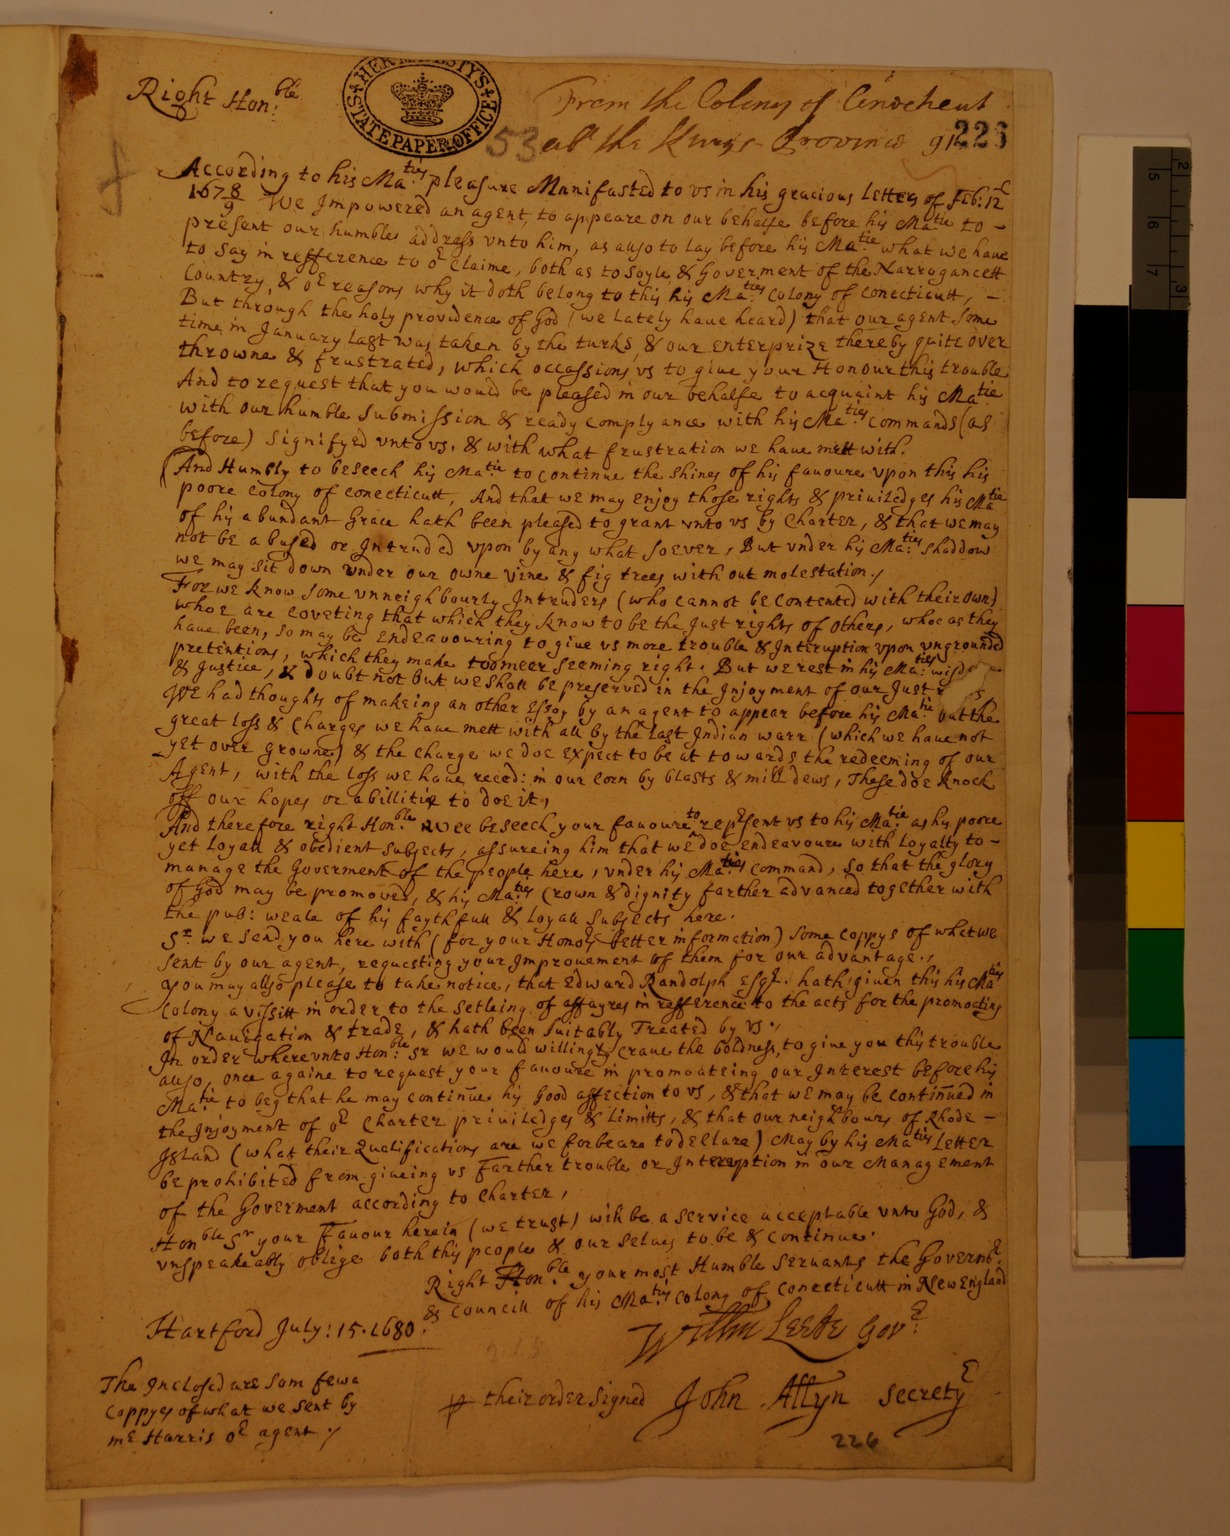 Right Hon:ble
HER MAJESTY'S
STATE PAPER OFFICE
From the Colony of
53
ab the Kings Province
226
According to his Ma:ties pleasure Manifasted to vs in his gracious Letters of Feb: 12
1678/9 We Impowered an agent, to appeare on our behalfe before his Ma:tie to -
present our humble address vnto him, as also to lay before his Ma:tie what we haue
to say in refference to or Claime, both as to soyle & Goverment of the Narrogancett
Country, & or reasons why it doth belong to this his Ma:ties Colony of Conecticutt, -
But through the holy providence of God (we lately haue heard) that our agent some
time in January last was taken by the turks, & our enterprize thereby quite over
throwne & frustrated, which occassions vs to giue your Honour this trouble
And to request that you would be pleased in our behalfe to acquaint his Ma:tie
with our humble submission & ready complyance with his Ma:ties commands (as
before) signifyed vnto vs, & with what frustration we haue mett with.
And Humbly to beseech his Ma:tie to continue the shines of his fauoure vpon this his
poore Colony of Conecticutt, And that we may enjoy those rights & priuiledges his Ma:tie
of his abundant Grace hath been pleased to grant vnto vs by Charter, & that we may
not be abused or Intruded vpon by any what soever, But vnder his Ma:ties shaddow
we may sit down vnder our owne vine & fig trees with out molestation./
For we know some vnneighbourly Intruders (who cannot be contented with their own)
whoe are coveting that which they know to be the Just rights of others, whoe as they
have been, so may be endeavouring to giue vs more trouble & Interuption vpon vngrounded
pretentions, which they make too meer seeming right. But we rest in his Ma:ties
& Justice, & doubt not but we shall be preserved in the Injoyment of our Just
We had thoughts of makeing an other Essay by an agent to appear before his Ma:tie but the
great loss & Charges we haue mett with all by the last Indian warr (which we haue not
yet over growne) & the charge we doe expect to be at towards the redeeming of our
Agent, with the loss we haue reced: in our corn by blasts & mill dews, These doe knock
off our hopes or abillitie to doe it,
And therefore right Hon:ble wee beseech your fauoure to represent vs to his Ma:tie as his poore
yet Loyall & obedient subjects, assureing him that we doe endeavoure with Loyalty to -
manage the Goverment of the people here, vnder his Ma:ties command, so that the glory
of God may be promoved, & his Ma:ties Crown & dignity farther advanced together with
the pub: weale of his faythfull & Loyall subjects here.
Sr we send you here with (for your Honors better information) some coppys of what we
sent by our agent, requesting your Improuement of them for our advantage.,
You may allso please to take notice, that Edward Randolph Esqr. hath giuen this his Ma:ties
Colony a vissitt in order to the setleing of affayres in refference to the acts for the promoating
of Nauigation & trade, & hath been suitably Treated by vs.,
In order wherevnto Hon:ble Sr we would willingly craue the boldness, to giue you this trouble
also, once againe to request your fauoure in promoateing our Interest before his
Ma:tie to beg that he may continue his Good affection to vs, & that we may be continued in
the Injoyment of or Charter priuiledges & Limitts, & that our neighbours of Rhode -
Island (what their Qualifications are we forbeare to declare) May by his Ma:ties Letter
be prohibited from giueing vs Farther trouble or Interuption in our Management
of the Goverment according to Charter,
Honble Sr your Fauour herein (we trust) will be a service acceptable vnto God, &
vnspeakeably oblige both this people & our selues to be & continue.
Right Hon:ble your most Humble Servants the Governor
& Councill of his Ma:ties Colony of Conecticutt in New England
Hartford July: 15. 1680.
Willm Leete Govr:
The Inclosed are som fewe
Coppyes of what we sent by
mr Harris or agent ./
p their order signed John Allyn Secretyr
226